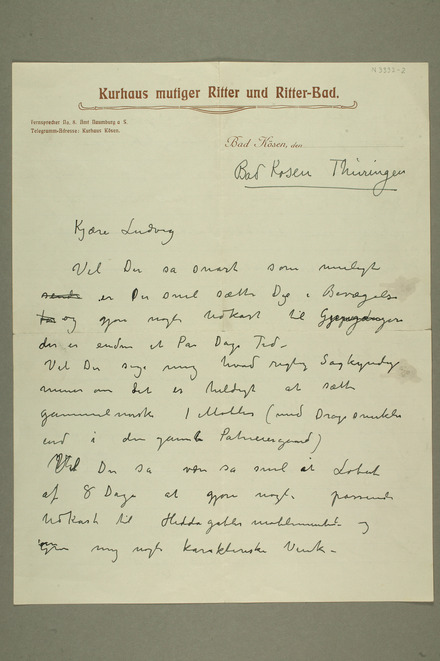 N 3992-2
Kurhaus mutiger Ritter und Ritter-Bad.
Fernsprecher No. 6. Amt Naumburg a S.
Telegramm-Adresse: Kurhaus Kösen.
Bad Kösen, den
Bad Kosen Thüringen
Kjære Ludvig
Vil Du sa snart som muligt
er Du snil sætte Dig i Bevægelse
og gjøre nogle Udkast til
der er endnu et Par Dage Tid-
Vil Du sige mig hvad rigtig Sagkyndige
mener om det er heldigt at sætte
gammelnorske Møbler (med Drage
end i den gamle
Vil Du sa være sa snil i Løbet
af 8 Dage at gjøre nogle passende
Udkast til Hedda gabler og
mig nogle Vink-